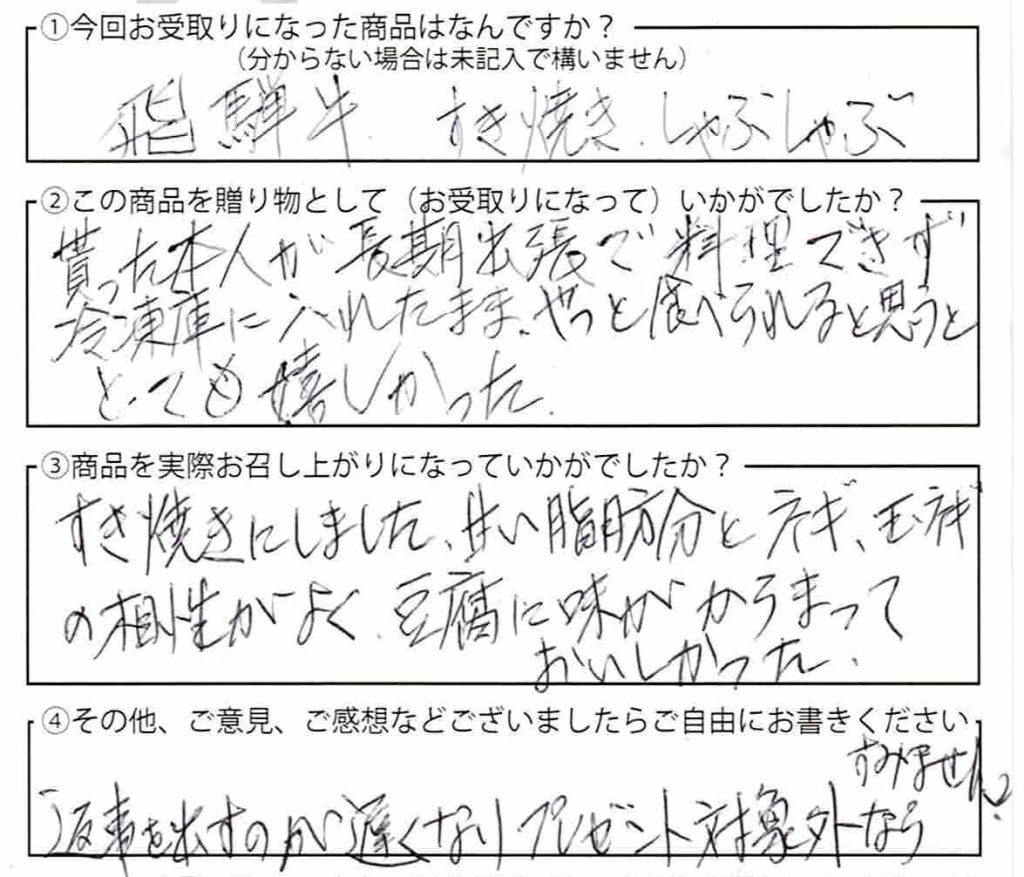 ①今回お受取りになった商品はなんですか？
（分からない場合は未記入で構いません）
飛騨牛 すき焼き.しゃぶしゃぶ
②この商品を贈り物として（お受取りになって）いかがでしたか？
貰った本人が長期出張で料理できず
冷凍庫に入れたまま.やっと食べられると思うと
とても嬉しかった.
③商品を実際お召し上がりになっていかがでしたか？
すき焼きにしました、甘い脂肪分とネギ、玉ネギ
の相性がよく.豆腐に味がからまって
おいしかった.
④その他、ご意見、ご感想などございましたらご自由にお書きください
返事を出すのが遅くなりプレゼント対象外なら
すみません